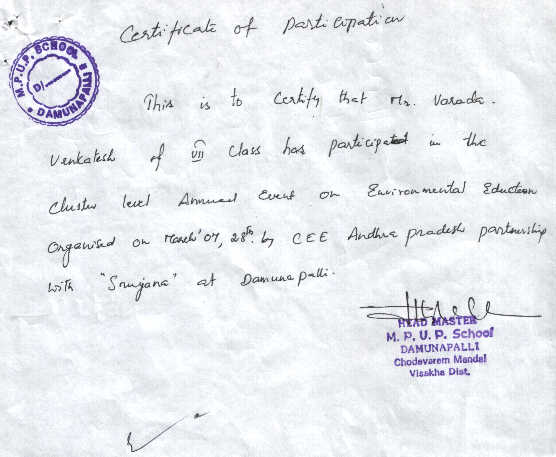 Certificate of Participation
M.P.U.P. SCHOOL
DAMUNAPALLI
This is to Certify that Mr. Varada.
Venkatesh of VII Class has participated in the
Cluster level Annual Event on Environmental Eduction
Organised on March' 07, 28th. by CEE Andhra pradesh partnership
with "Srujana" at Damunapalli.
HEAD MASTER
M. P. U. P. School
DAMUNAPALLI
Chodavaram Mandal
Visakha Dist.